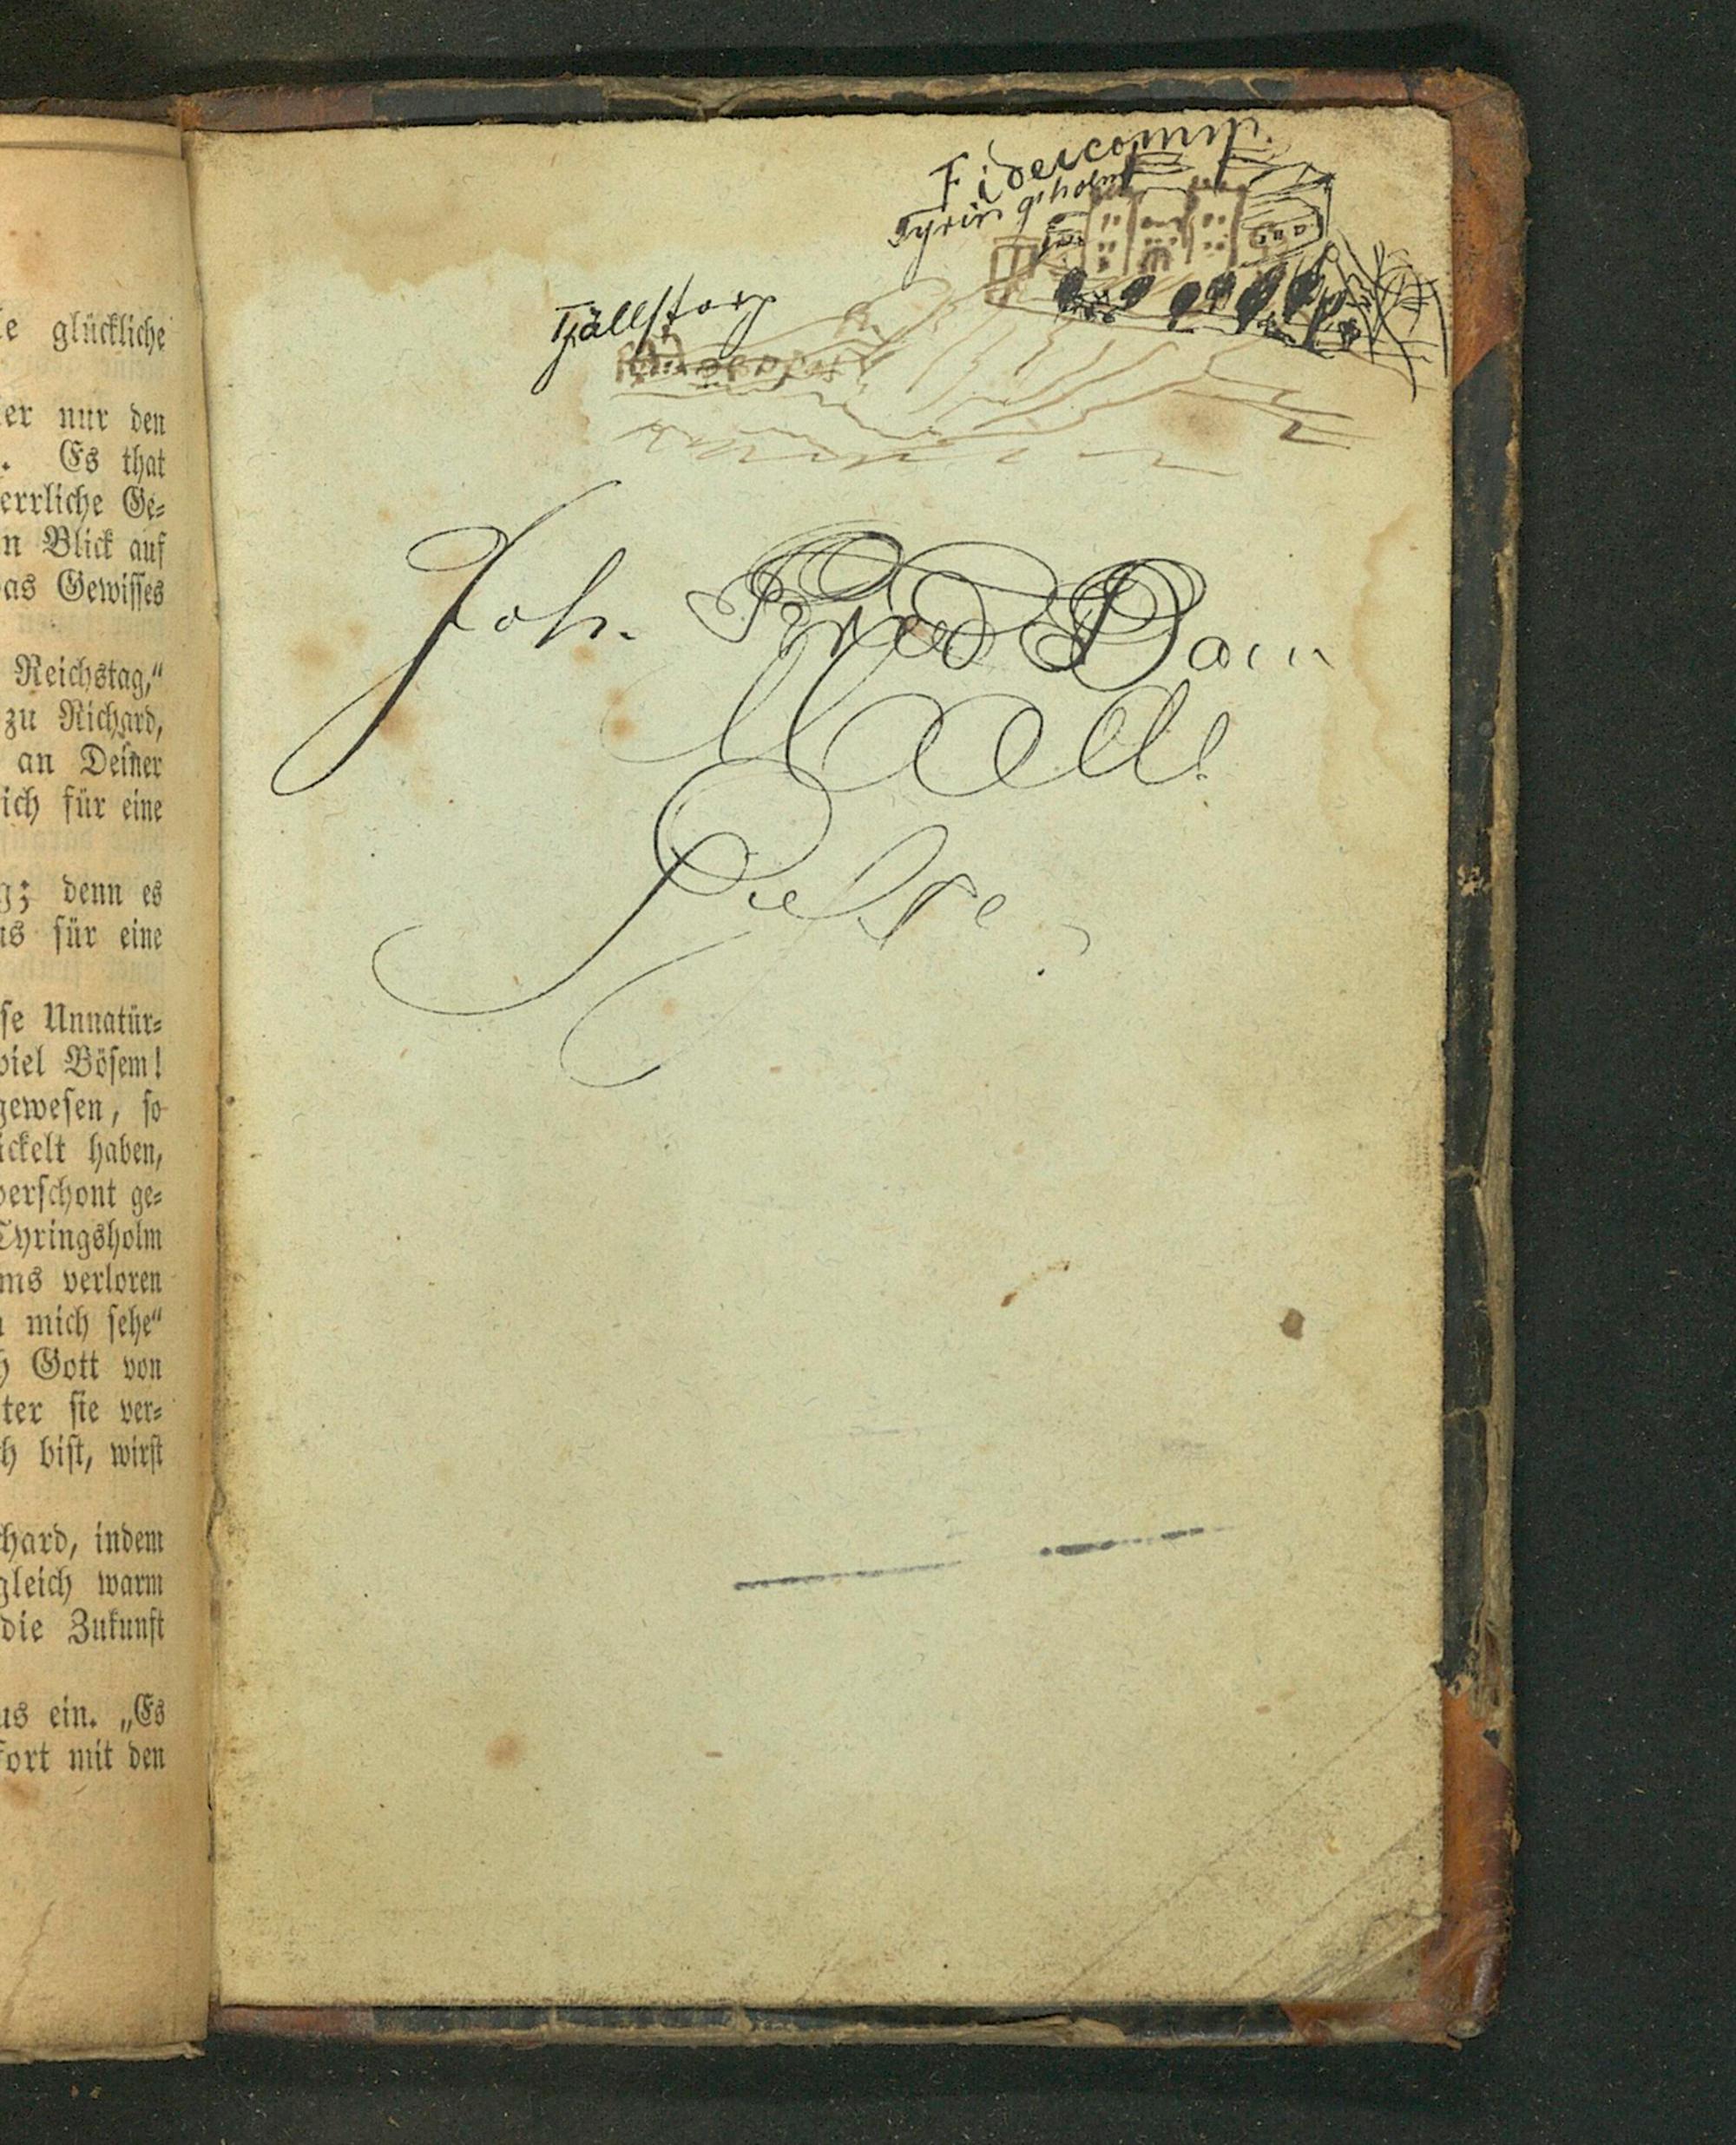 le glückliche
er nur den
. Es that
errliche Ge⸗
n Blick auf
as Gewisses
Reichstag,“
zu Richard,
an Deiner
ich für eine
g; denn es
us für eine
se Unnatür⸗
viel Bösem!
gewesen, so
ickelt haben,
verschont ge⸗
Tyringsholm
ms verloren
mich sehe“
h Gott von
ter sie ver⸗
h bist, wirst
chard, indem
gleich warm
die Zukunft
us ein. „Es
fort mit den
Fideicomm.
Tyringsholm
Fjällstorp
Joh.